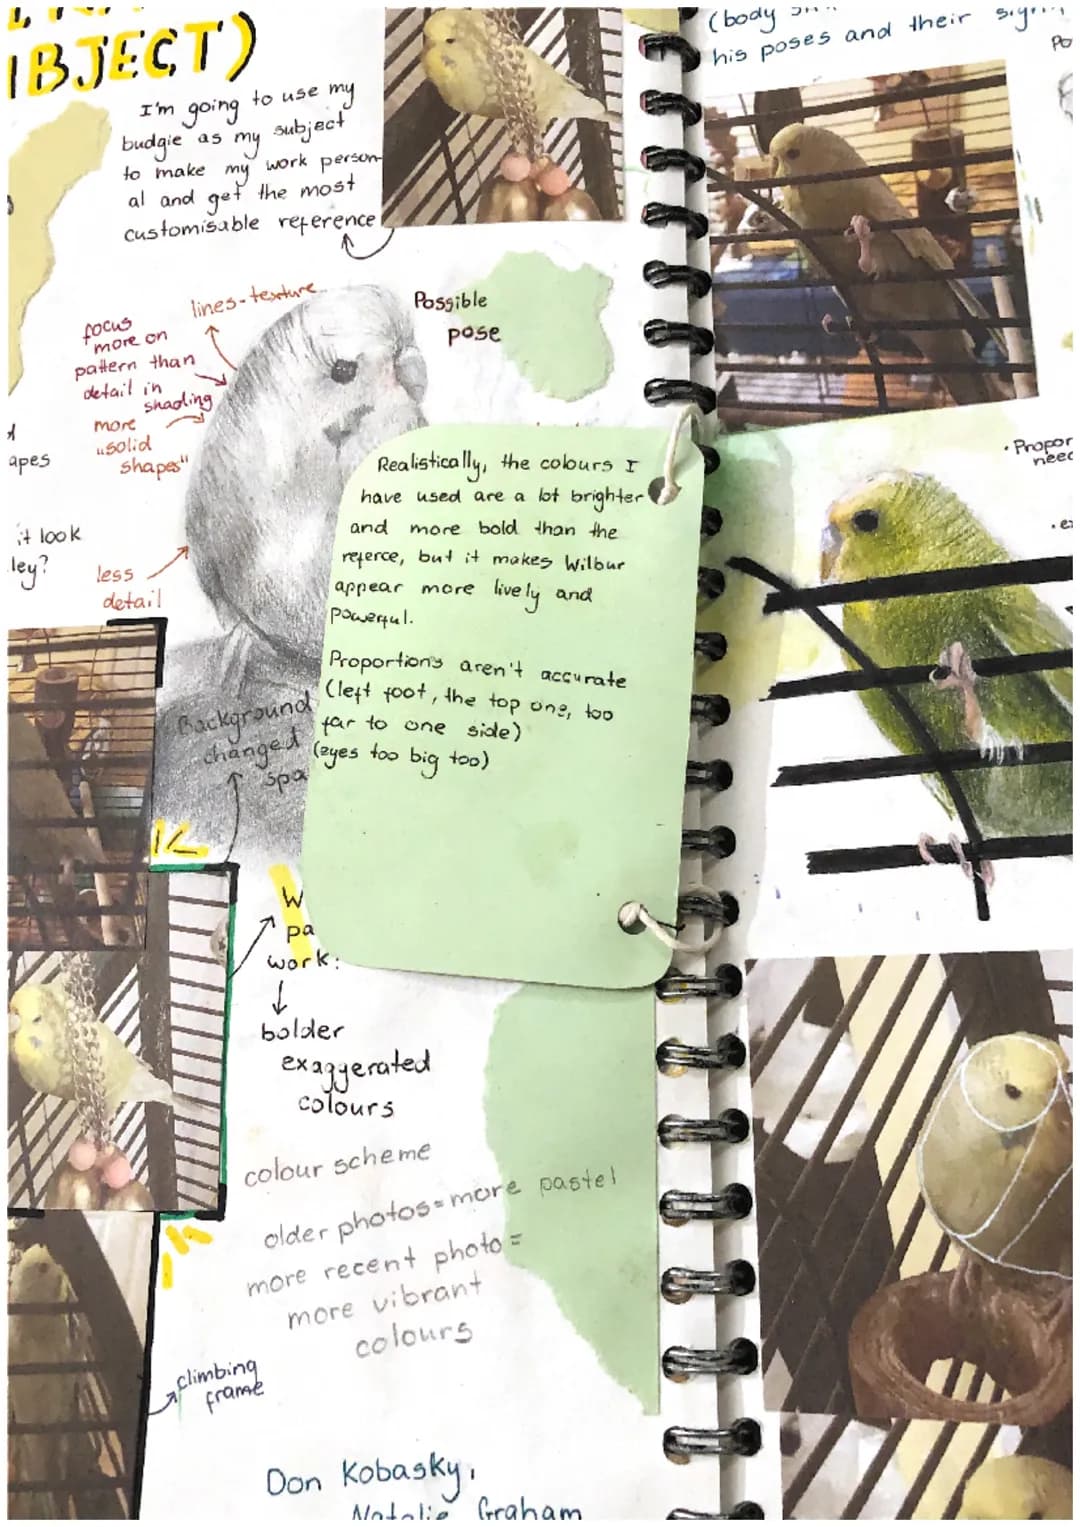 BJECT)
I'm going to use my
budgie as my subject
to make my work person-
al and get the most
customisable reference
lines-texture
focus
more on
pattern than
detail in
shading
more
"solid
shapes"
less
detail
Possible
pose
apes
it look
ley?
Background
changed
spa
Realistically, the colours I
have used are a lot brighter
and more bold than the
referce, but it makes Wilbur
appear more lively and
powerful.
Proportions aren't accurate
(left foot, the top one, too
far to one side)
(eyes too big too)
W
pa
work:
bolder
exaggerated
colours
colour scheme
older photos=more pastel
more recent photo=
more vibrant
colours
climbing
frame
Don Kobasky,
Natalie Graham
(body
his poses and their
Po
• Propor
need
• e